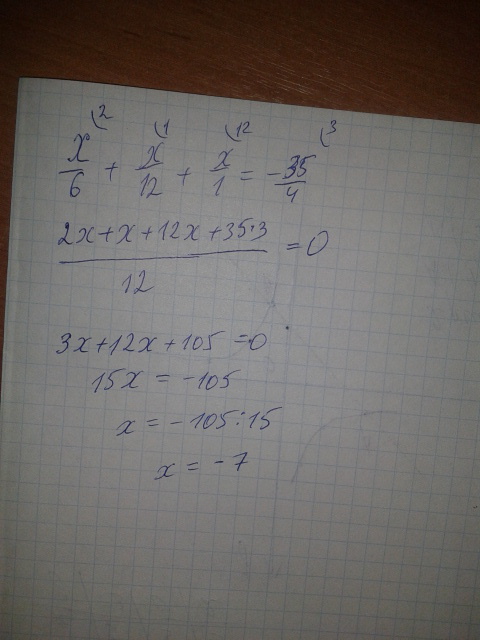 x/6 + x/12 + x/1 = -35/4
2 1 12 3
(2x+x+12x+35·3)/12 = 0
3x+12x+105=0
15x = -105
x = -105:15
x = -7